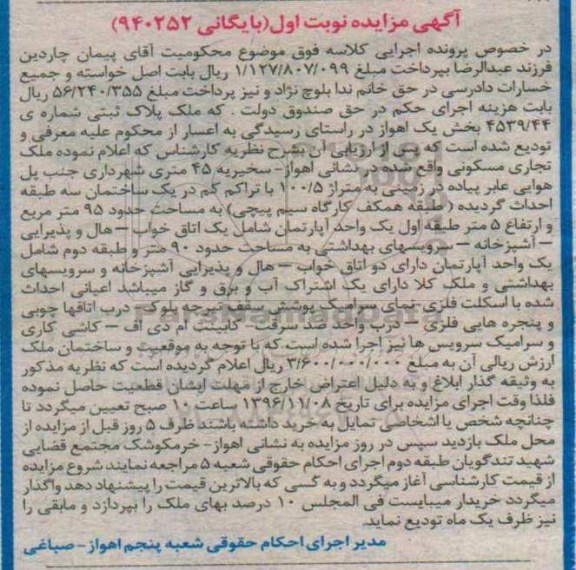 آگهی مزایده نوبت اول(بایگانی ۹۴۰۲۵۲)
در خصوص پرونده اجرایی کلاسه فوق موضوع محکومیت آقای پیمان چاردین
فرزند عبدالرضا بپرداخت مبلغ ۱/۱۲۷/۸۰۷/۰۹۹ ریال بابت اصل خواسته و جمیع
خسارات دادرسی در حق خانم ندا بلوچ نژاد و نیز پرداخت مبلغ ۵۶/۲۴۰/۳۵۵ ریال
بابت هزینه اجرای حکم در حق صندوق دولت . که ملک پلاک ثبتی شماره ی
۴۵۳۹/۴۴ بخش یک اهواز در راستای رسیدگی به اعسار از محکوم علیه معرفی و
تودیع شده است که پس از ارزیابی آن بشرح نظریه کارشناس که اعلام نموده ملک
تجاری مسکونی واقع شده در نشانی اهواز- سخیریه ۴۵ متری شهرداری جنب پل
هوایی عابر پیاده در زمینی به متراژ ۱۰۰/۵ با تراکم کم در یک ساختمان سه طبقه
احداث گردیده (طبقه همکف کارگاه سیم پیچی) به مساحت حدود ۹۵ متر مربع
و ارتفاع ۵ متر طبقه اول یک واحد آپارتمان شامل یک اتاق خواب – هال و پذیرایی
– آشپزخانه – سرویسهای بهداشتی به مساحت حدود ۹۰ متر و طبقه دوم شامل
یک واحد آپارتمان دارای دو اتاق خواب – هال و پذیرایی آشپزخانه و سرویسهای
بهداشتی و ملک کلا دارای یک اشتراک آب و برق و گاز میباشد اعیانی احداث
شده با اسکلت فلزی-نمای سرامیک پوشش سقف تیرچه بلوک – درب اتاقها چوبی
و پنجره هایی فلزی – درب واحد ضد سرقت – کابینت ام دی اف – کاشی کاری
و سرامیک سرویس ها نیز اجرا شده است که با توجه به موقعیت و ساختمان ملک
ارزش ریالی آن به مبلغ ۳/۶۰۰/۰۰۰/۰۰۰ ریال اعلام گردیده است که نظریه مذکور
به وثیقه گذار ابلاغ و به دلیل اعتراض خارج از مهلت ایشان قطعیت حاصل نموده
فلذا وقت اجرای مزایده برای تاریخ ۱۳۹۶/۱۱/۰۸ ساعت ۱۰ صبح تعیین میگردد تا
چنانچه شخص یا اشخاصی تمایل به خرید داشته باشند ظرف ۵ روز قبل از مزایده از
محل ملک بازدید سپس در روز مزایده به نشانی اهواز- خرمکوشک مجتمع قضایی
شهید تندگویان طبقه دوم اجرای احکام حقوقی شعبه ۵ مراجعه نمایند شروع مزایده
از قیمت کارشناسی آغاز میگردد و به کسی که بالاترین قیمت را پیشنهاد دهد واگذار
میگردد خریدار میبایست فی المجلس ۱۰ درصد بهای ملک را بپردازد و مابقی را
نیز ظرف یک ماه تودیع نماید.
مدیر اجرای احکام حقوقی شعبه پنجم اهواز - صباغی